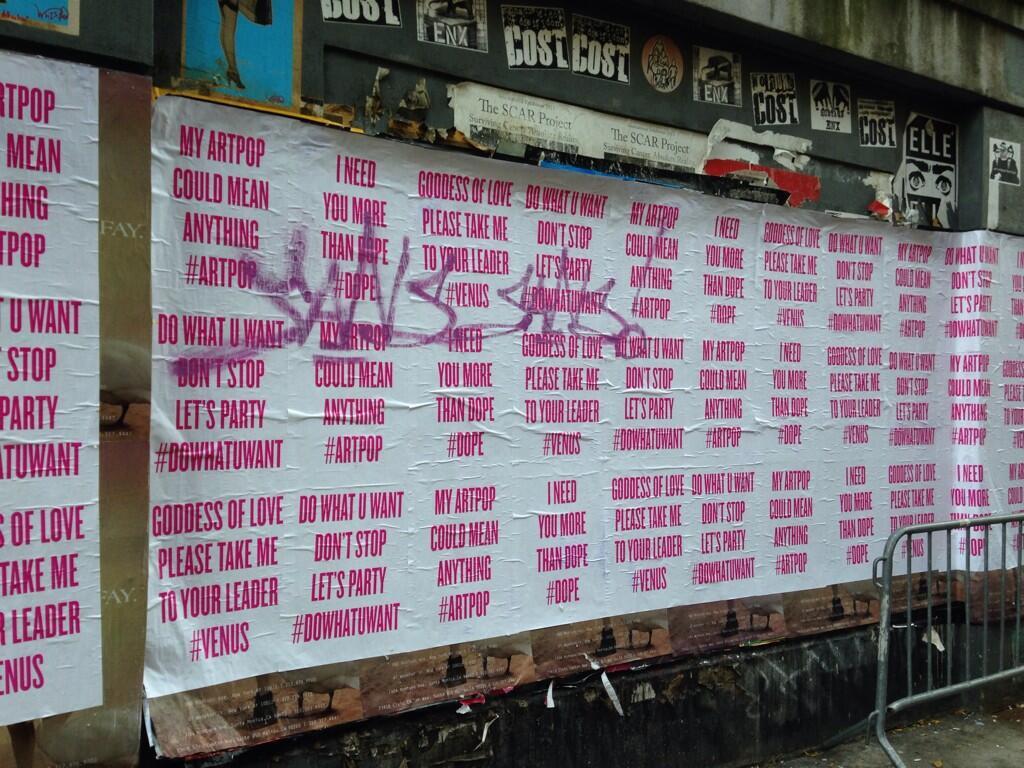 COST
ENX
COST
COST
ENX
COST
ENX
COST
ELLE
The SCAR Project
The SCAR Project
RTPOP
MEAN
HING
TPOP
T U WANT
STOP
PARTY
ATUWANT
S OF LOVE
TAKE ME
R LEADER
ENUS
FAY.
FAY.
MY ARTPOP
COULD MEAN
ANYTHING
#ARTPOP
I NEED
YOU MORE
THAN DOPE
#DOPE
GODDESS OF LOVE
PLEASE TAKE ME
TO YOUR LEADER
#VENUS
DO WHAT U WANT
DON'T STOP
LET'S PARTY
#DOWHATUWANT
MY ARTPOP
COULD MEAN
ANYTHING
#ARTPOP
I NEED
YOU MORE
THAN DOPE
#DOPE
GODDESS OF LOVE
PLEASE TAKE ME
TO YOUR LEADER
#VENUS
DO WHAT U WANT
DON'T STOP
LET'S PARTY
#DOWHATUWANT
MY ARTPOP
COULD MEAN
ANYTHING
#ARTPOP
DO WHAT U WANT
DON'T STOP
LET'S PARTY
#DOWHATUWANT
DO WHAT U WANT
DON'T STOP
LET'S PARTY
#DOWHATUWANT
MY ARTPOP
COULD MEAN
ANYTHING
#ARTPOP
I NEED
YOU MORE
THAN DOPE
#DOPE
GODDESS OF LOVE
PLEASE TAKE ME
TO YOUR LEADER
#VENUS
DO WHAT U WANT
DON'T STOP
LET'S PARTY
#DOWHATUWANT
MY ARTPOP
COULD MEAN
ANYTHING
#ARTPOP
I NEED
YOU MORE
THAN DOPE
#DOPE
GODDESS OF LOVE
PLEASE TAKE ME
TO YOUR LEADER
#VENUS
DO WHAT U WANT
DON'T STOP
LET'S PARTY
#DOWHATUWANT
MY ARTPOP
COULD MEAN
ANYTHING
#ARTPOP
GODDESS OF LOVE
PLEASE TAKE ME
TO YOUR LEADER
#VENUS
DO WHAT U WANT
DON'T STOP
LET'S PARTY
#DOWHATUWANT
MY ARTPOP
COULD MEAN
ANYTHING
#ARTPOP
I NEED
YOU MORE
THAN DOPE
#DOPE
GODDESS OF LOVE
PLEASE TAKE ME
TO YOUR LEADER
#VENUS
DO WHAT U WANT
DON'T STOP
LET'S PARTY
#DOWHATUWANT
MY ARTPOP
COULD MEAN
ANYTHING
#ARTPOP
I NEED
YOU MORE
THAN DOPE
#DOPE
GODDESS OF LOVE
PLEASE TAKE ME
TO YOUR LEADER
#VENUS
I NEED
YOU MORE
THAN DOPE
#DOP